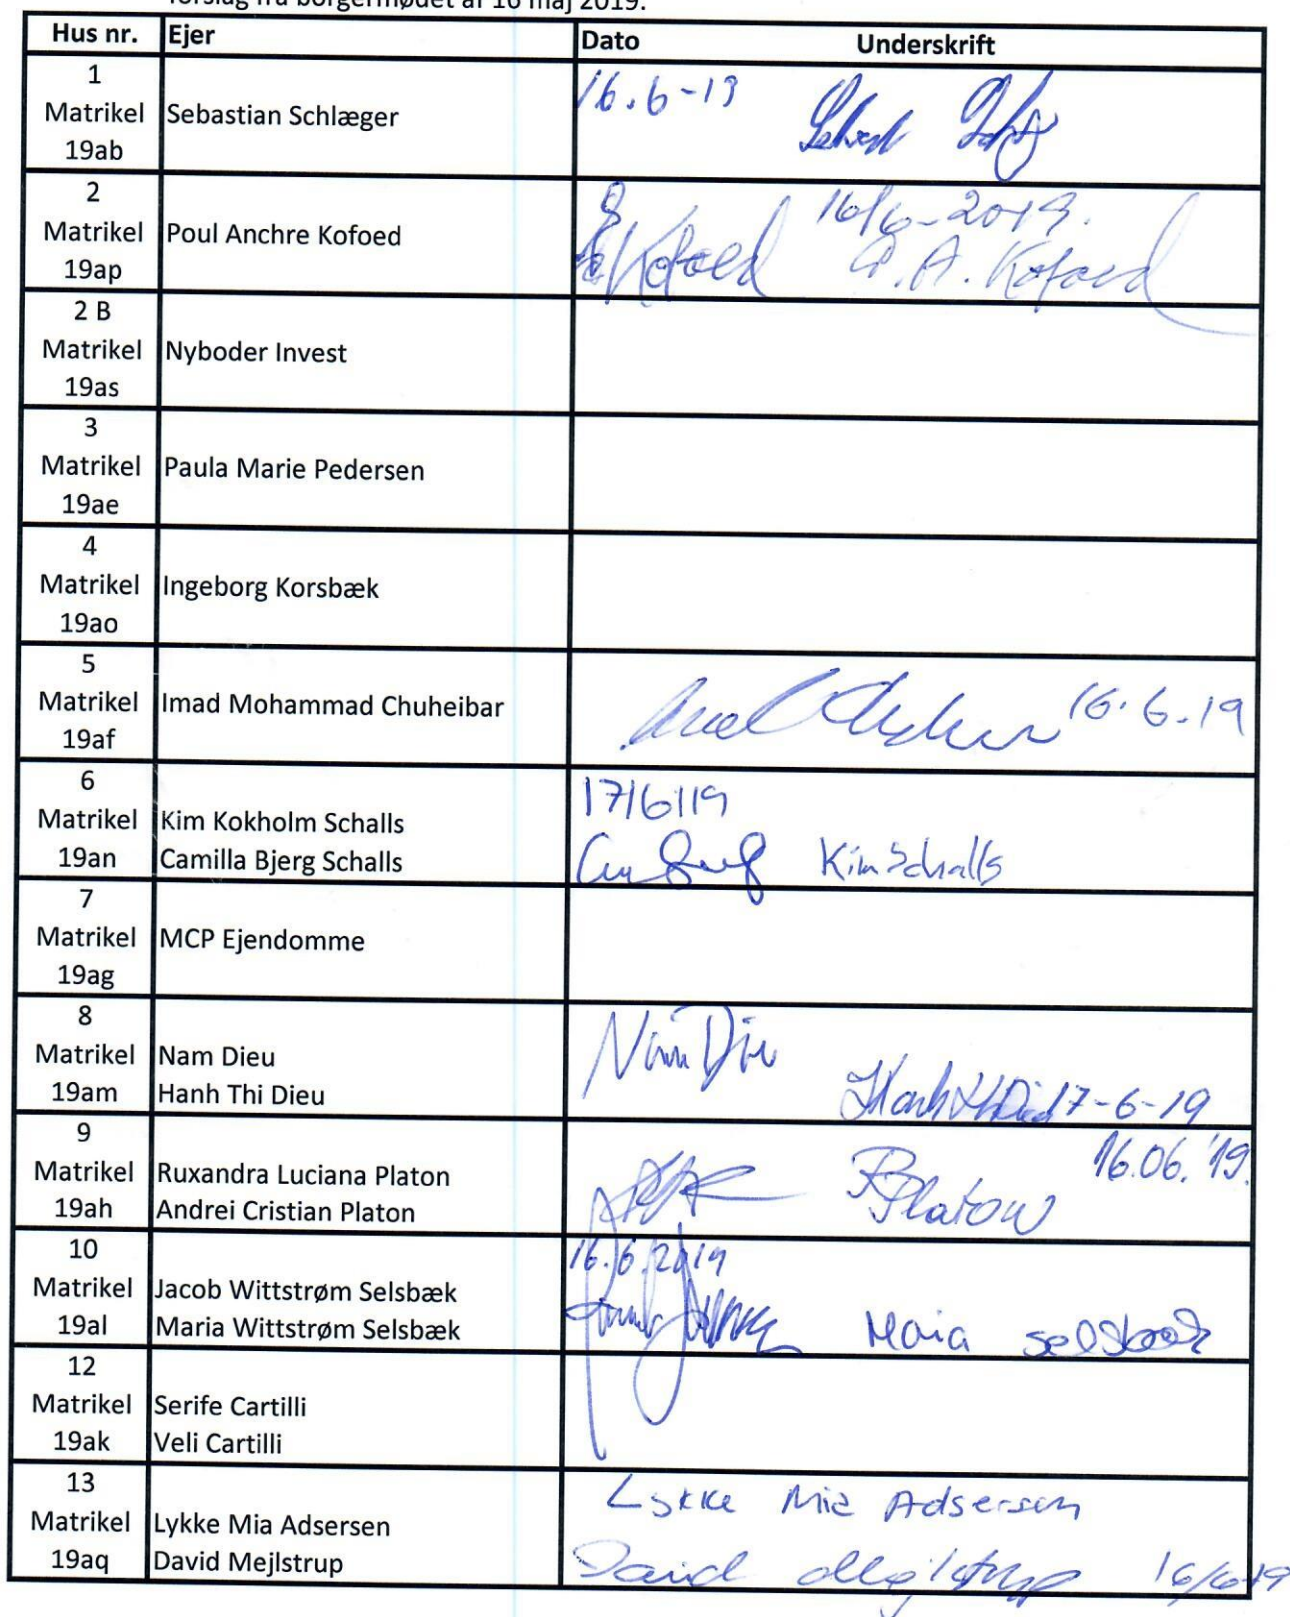 forslag fra borgermødet af 16 maj 2019.
Hus nr. Ejer Dato Underskrift
1
Matrikel
19ab
Sebastian Schlæger
16.6-19
2
Matrikel
19ap
Poul Anchre Kofoed
16/6-2019.
Kofoed P.A. Kofoed
2 B
Matrikel
19as
Nyboder Invest
3
Matrikel
19ae
Paula Marie Pedersen
4
Matrikel
19ao
Ingeborg Korsbæk
5
Matrikel
19af
Imad Mohammad Chuheibar
16.6.19
6
Matrikel
19an
Kim Kokholm Schalls
Camilla Bjerg Schalls
17/6/19
Kim Schalls
7
Matrikel
19ag
MCP Ejendomme
8
Matrikel
19am
Nam Dieu
Hanh Thi Dieu
Nam Dieu
17-6-19
9
Matrikel
19ah
Ruxandra Luciana Platon
Andrei Cristian Platon
16.06.'19.
Platon
10
Matrikel
19al
Jacob Wittstrøm Selsbæk
Maria Wittstrøm Selsbæk
16.6.2019
Maria Selsbæk
12
Matrikel
19ak
Serife Cartilli
Veli Cartilli
13
Matrikel
19aq
Lykke Mia Adsersen
David Mejlstrup
Lykke Mia Adsersen
David Mejlstrup 16/6-19